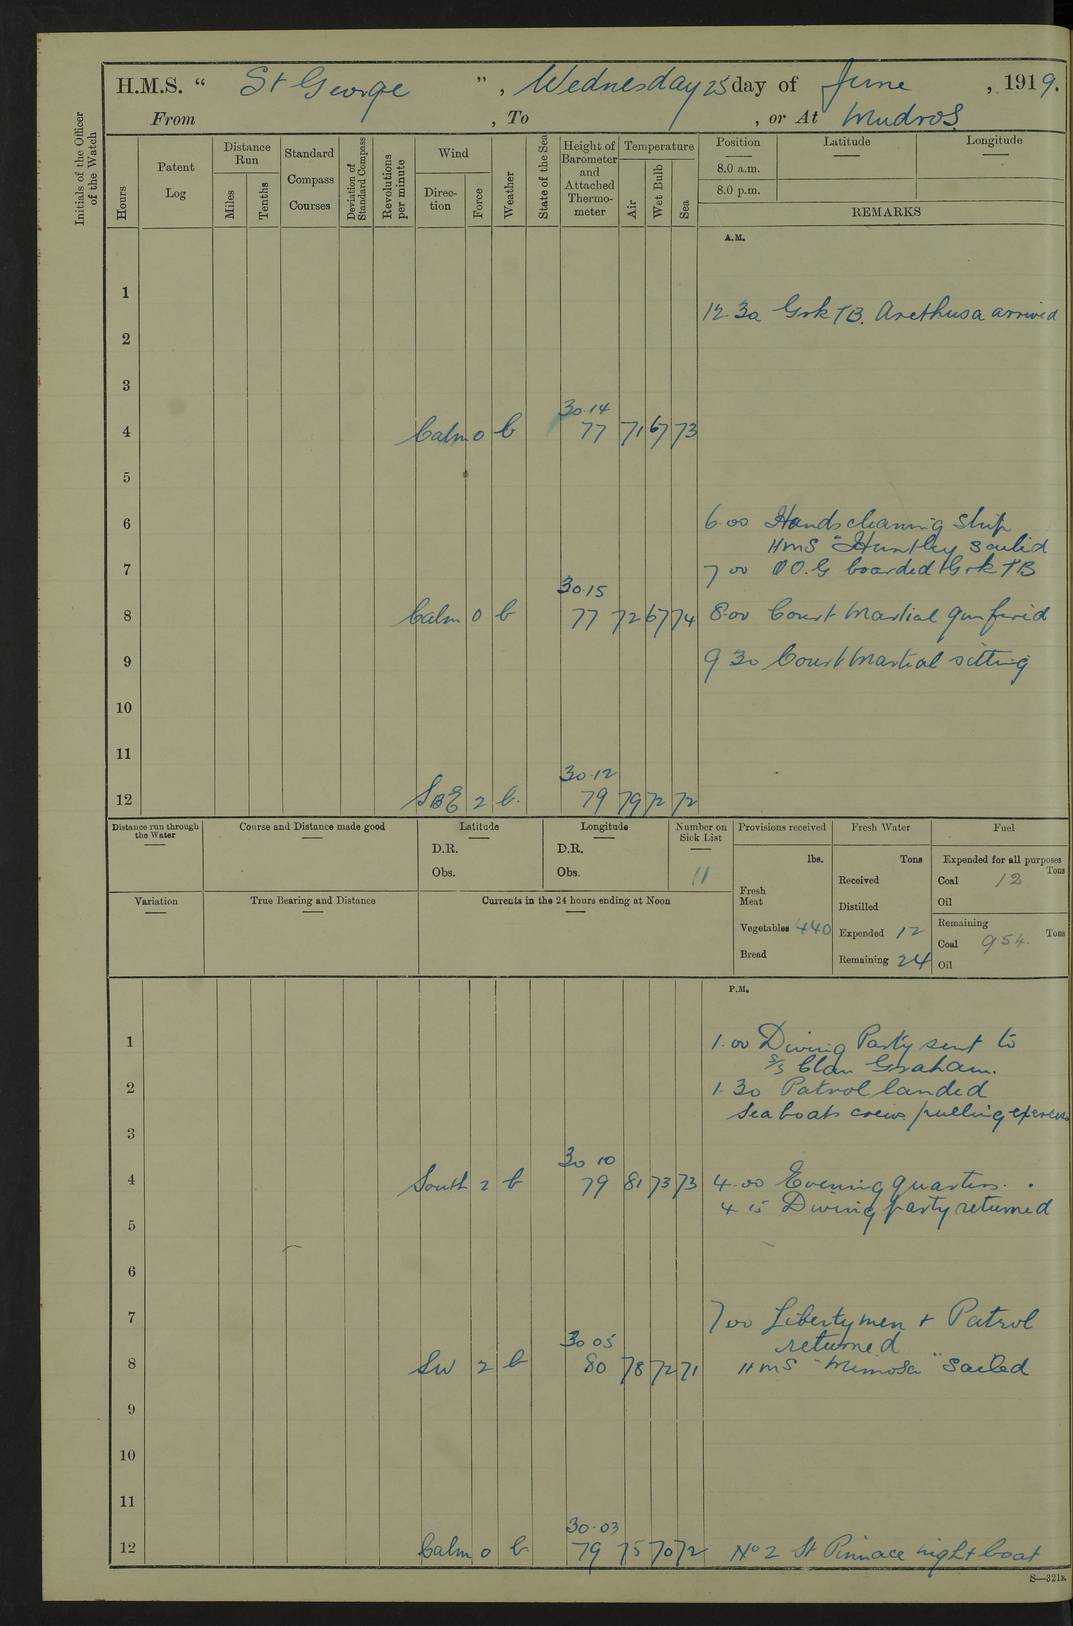 H.M.S. “ St George ” , Wednesday 25 day of June , 1919.
From , To , or At Mudros
Initials of the Officer of the Watch
Hours
Patent Log
Distance Run
Miles
Tenths
Standard Compass Courses
Deviation of Standard Compass
Revolutions per minute
Wind
Direction
Force
Weather
State of the Sea
Height of Barometer and Attached Thermometer
Temperature
Air
Wet Bulb
Sea
Position Latitude Longitude
8.0 a.m.
8.0 p.m.
REMARKS
A.M.
1
12 30 Grk TB. Arethusa arrived
2
3
30.14
4 Calm 0 b 77 71 67 73
5
6 6.00 Hands cleaning Ship
HMS "Huntley sailed
7 7 00 O.O.G boarded Grk TB
30.15
8 Calm 0 b 77 72 67 74 8.00 Court Martial gun fired
9 9 30 Court Martial sitting
10
11
30.12
12 SBE 2 b. 79 79 72 72
Distance run through the Water
Course and Distance made good
Latitude
D.R.
Obs.
Longitude
D.R.
Obs.
Number on Sick List
11
Provisions received
lbs.
Fresh Meat
Vegetables 440
Bread
Fresh Water
Tons
Received
Distilled
Expended 12
Remaining 24
Fuel
Expended for all purposes
Tons
Coal 12
Oil
Remaining
Tons
Coal 954.
Oil
Variation
True Bearing and Distance
Currents in the 24 hours ending at Noon
P.M.
1 1.00 Diving Party sent to
S/S Clan Graham.
2 1.30 Patrol landed
Sea boats crews pulling exercise
3
30 10
4 South 2 b 79 81 73 73 4.00 Evening quarters.
4 15 Diving party returned
5
6
7 7 00 Liberty men + Patrol
returned
30 05
8 SW 2 b 80 78 72 71 HMS "Mimosa" sailed
9
10
11
30.03
12 Calm 0 b. 79 75 70 72 No 2 St Pinnace night boat
S—321B.